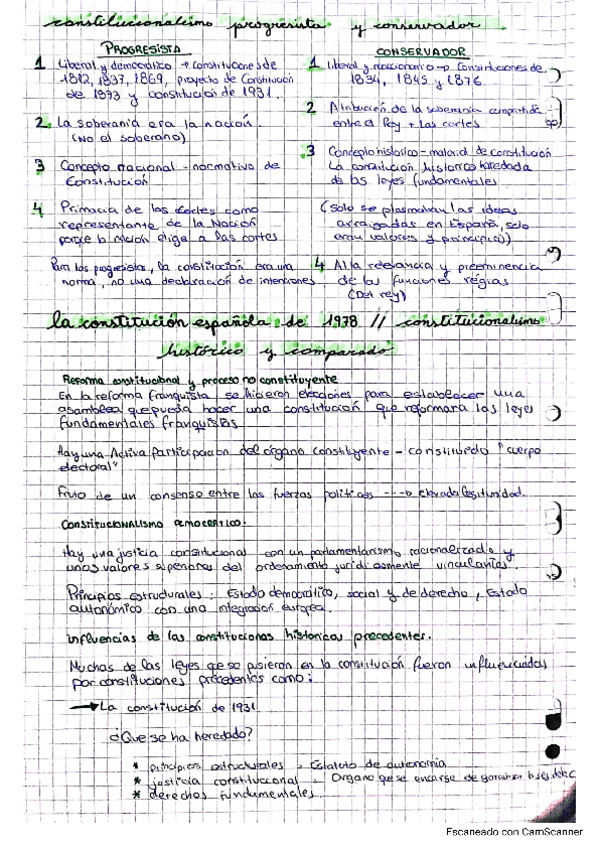 constitucionalismo progresista y conservador
PROGRESISTA
1 Liberal y democratico → Constituciones de
1812, 1837, 1869, proyecto de Constitución
de 1873 y constitución de 1931.
2. La soberania era la nación.
(NO el soberano)
3 Concepto racional - normativo de
Constitución
4 Primacia de las Cortes como
representante de la Nación
porque la nación elige a las cortes
Para los progresistas, la constitución era una
norma, no una declaración de intenciones
CONSERVADOR
1 Liberal y reaccionario → Constituciones de
1834, 1845 y 1876.
2 Atribución de la soberania compartida
entre el Rey + las cortes
3 Concepto historico - material de constitución
La constitución historica heredada
de las leyes fundamentales
(solo se plasmaban las ideas
arraigadas en España, solo
eran valores y principios)
4 Alta relevancia y preeminencia
de las funciones regias
(Del rey)
la constitución española de 1978 // constitucionalismo
histórico y comparado
Reforma constitucional y proceso no constituyente
En la reforma franquista se hicieron elecciones para establecer una
asamblea que pueda hacer una constitución que reformara las leyes
fundamentales franquistas
Hay una Activa participación del órgano constituyente - constituido "cuerpo
electoral"
Fruto de un consenso entre las fuerzas políticas ---→ elevada legitimidad.
CONSTITUCIONALISMO DEMOCRÁTICO.
Hay una justicia constitucional con un parlamentarismo racionalizado y
unos valores superiores del ordenamiento juridicamente vinculantes.
Principios estructurales: Estado democrático, social y de derecho, Estado
autonómico con una integración europea.
influencias de las constituciones historicas precedentes.
Muchas de las leyes que se pusieron en la constitución fueron influenciadas
por constituciones precedentes como:
→ La constitución de 1931.
¿Que se ha heredado?
* principios estructurales - Estatuto de autonomia
* justicia constitucional - Organo que se encarge de garantizar
* derechos fundamentales
Escaneado con CamScanner